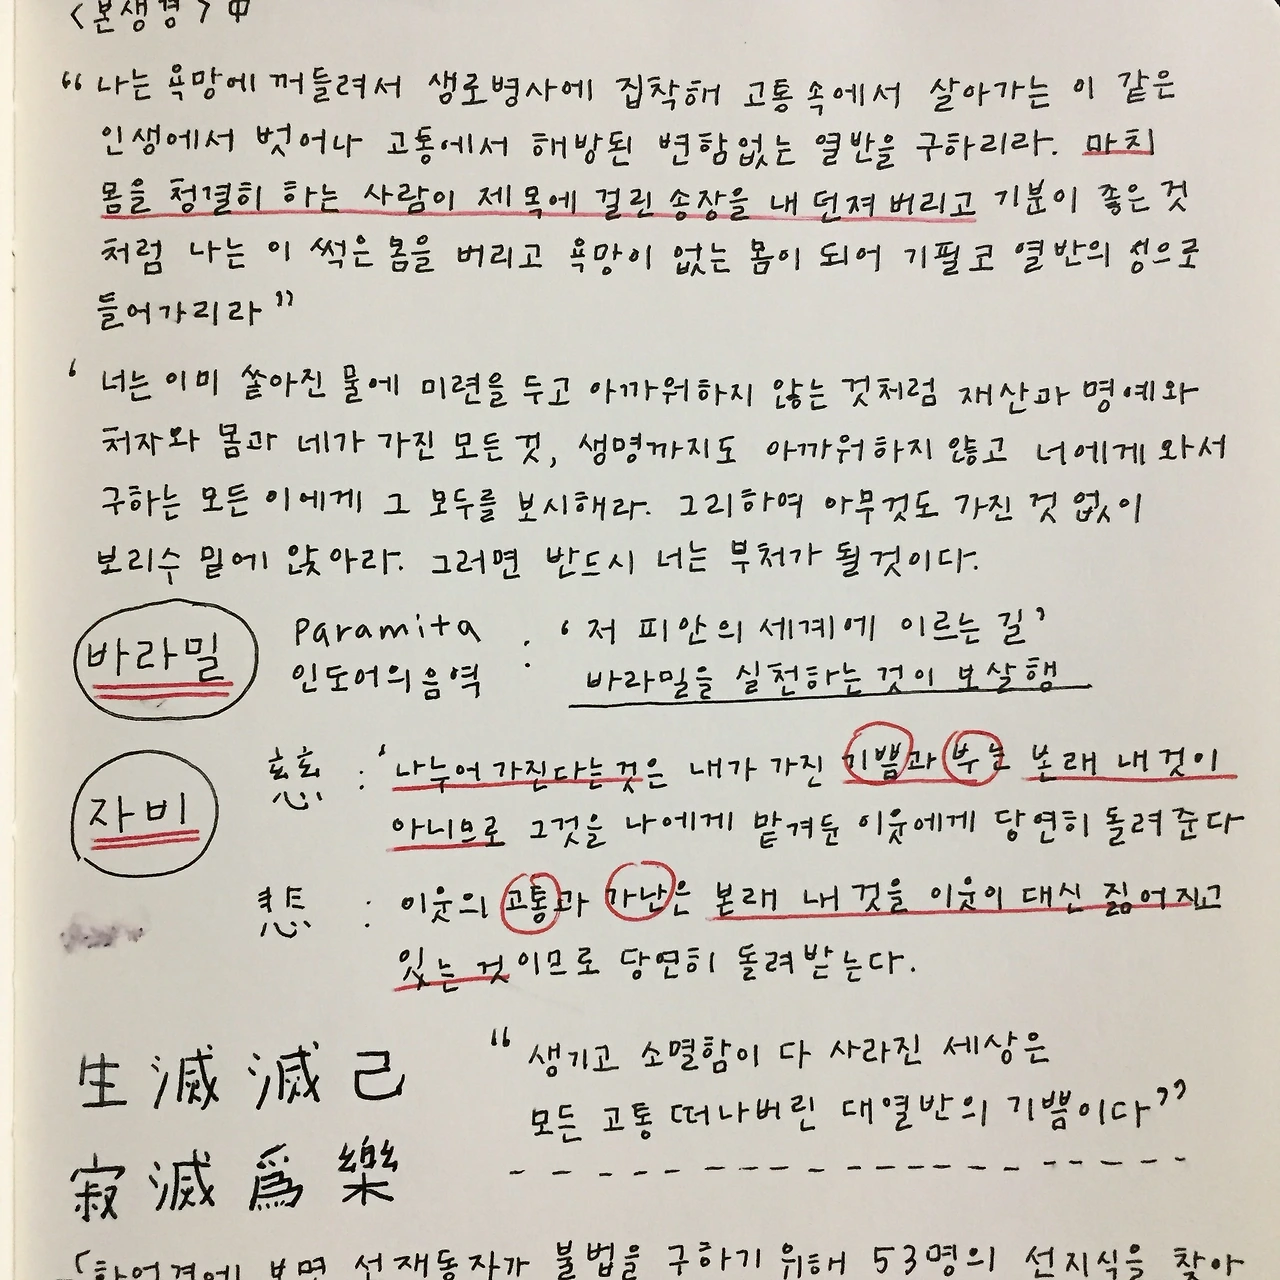 <본생경> 中
“나는 욕망에 꺼들려서 생로병사에 집착해 고통 속에서 살아가는 이 같은
인생에서 벗어나 고통에서 해방된 변함없는 열반을 구하리라. 마치
몸을 청결히 하는 사람이 제 목에 걸린 송장을 내 던져 버리고 기분이 좋은 것
처럼 나는 이 썩은 몸을 버리고 욕망이 없는 몸이 되어 기필코 열반의 성으로
들어가리라”
‘너는 이미 쏟아진 물에 미련을 두고 아까워하지 않는 것처럼 재산과 명예와
처자와 몸과 네가 가진 모든 것, 생명까지도 아까워하지 않고 너에게 와서
구하는 모든 이에게 그 모두를 보시해라. 그리하여 아무것도 가진 것 없이
보리수 밑에 앉아라. 그러면 반드시 너는 부처가 될 것이다.
바라밀 Paramita : ‘저 피안의 세계에 이르는 길’
인도어의 음역 바라밀을 실천하는 것이 보살행
자비
: ‘나누어 가진다는 것은 내가 가진 기쁨과 부는 본래 내 것이
아니므로 그것을 나에게 맡겨둔 이웃에게 당연히 돌려 준다
悲 : 이웃의 고통과 가난은 본래 내 것을 이웃이 대신 짊어지고
있는 것이므로 당연히 돌려받는다.
生滅滅己 “생기고 소멸함이 다 사라진 세상은
寂滅爲樂 모든 고통 떠나버린 대열반의 기쁨이다”
「화엄경에 보면 선재동자가 불법을 구하기 위해 53명의 선지식을 찾아